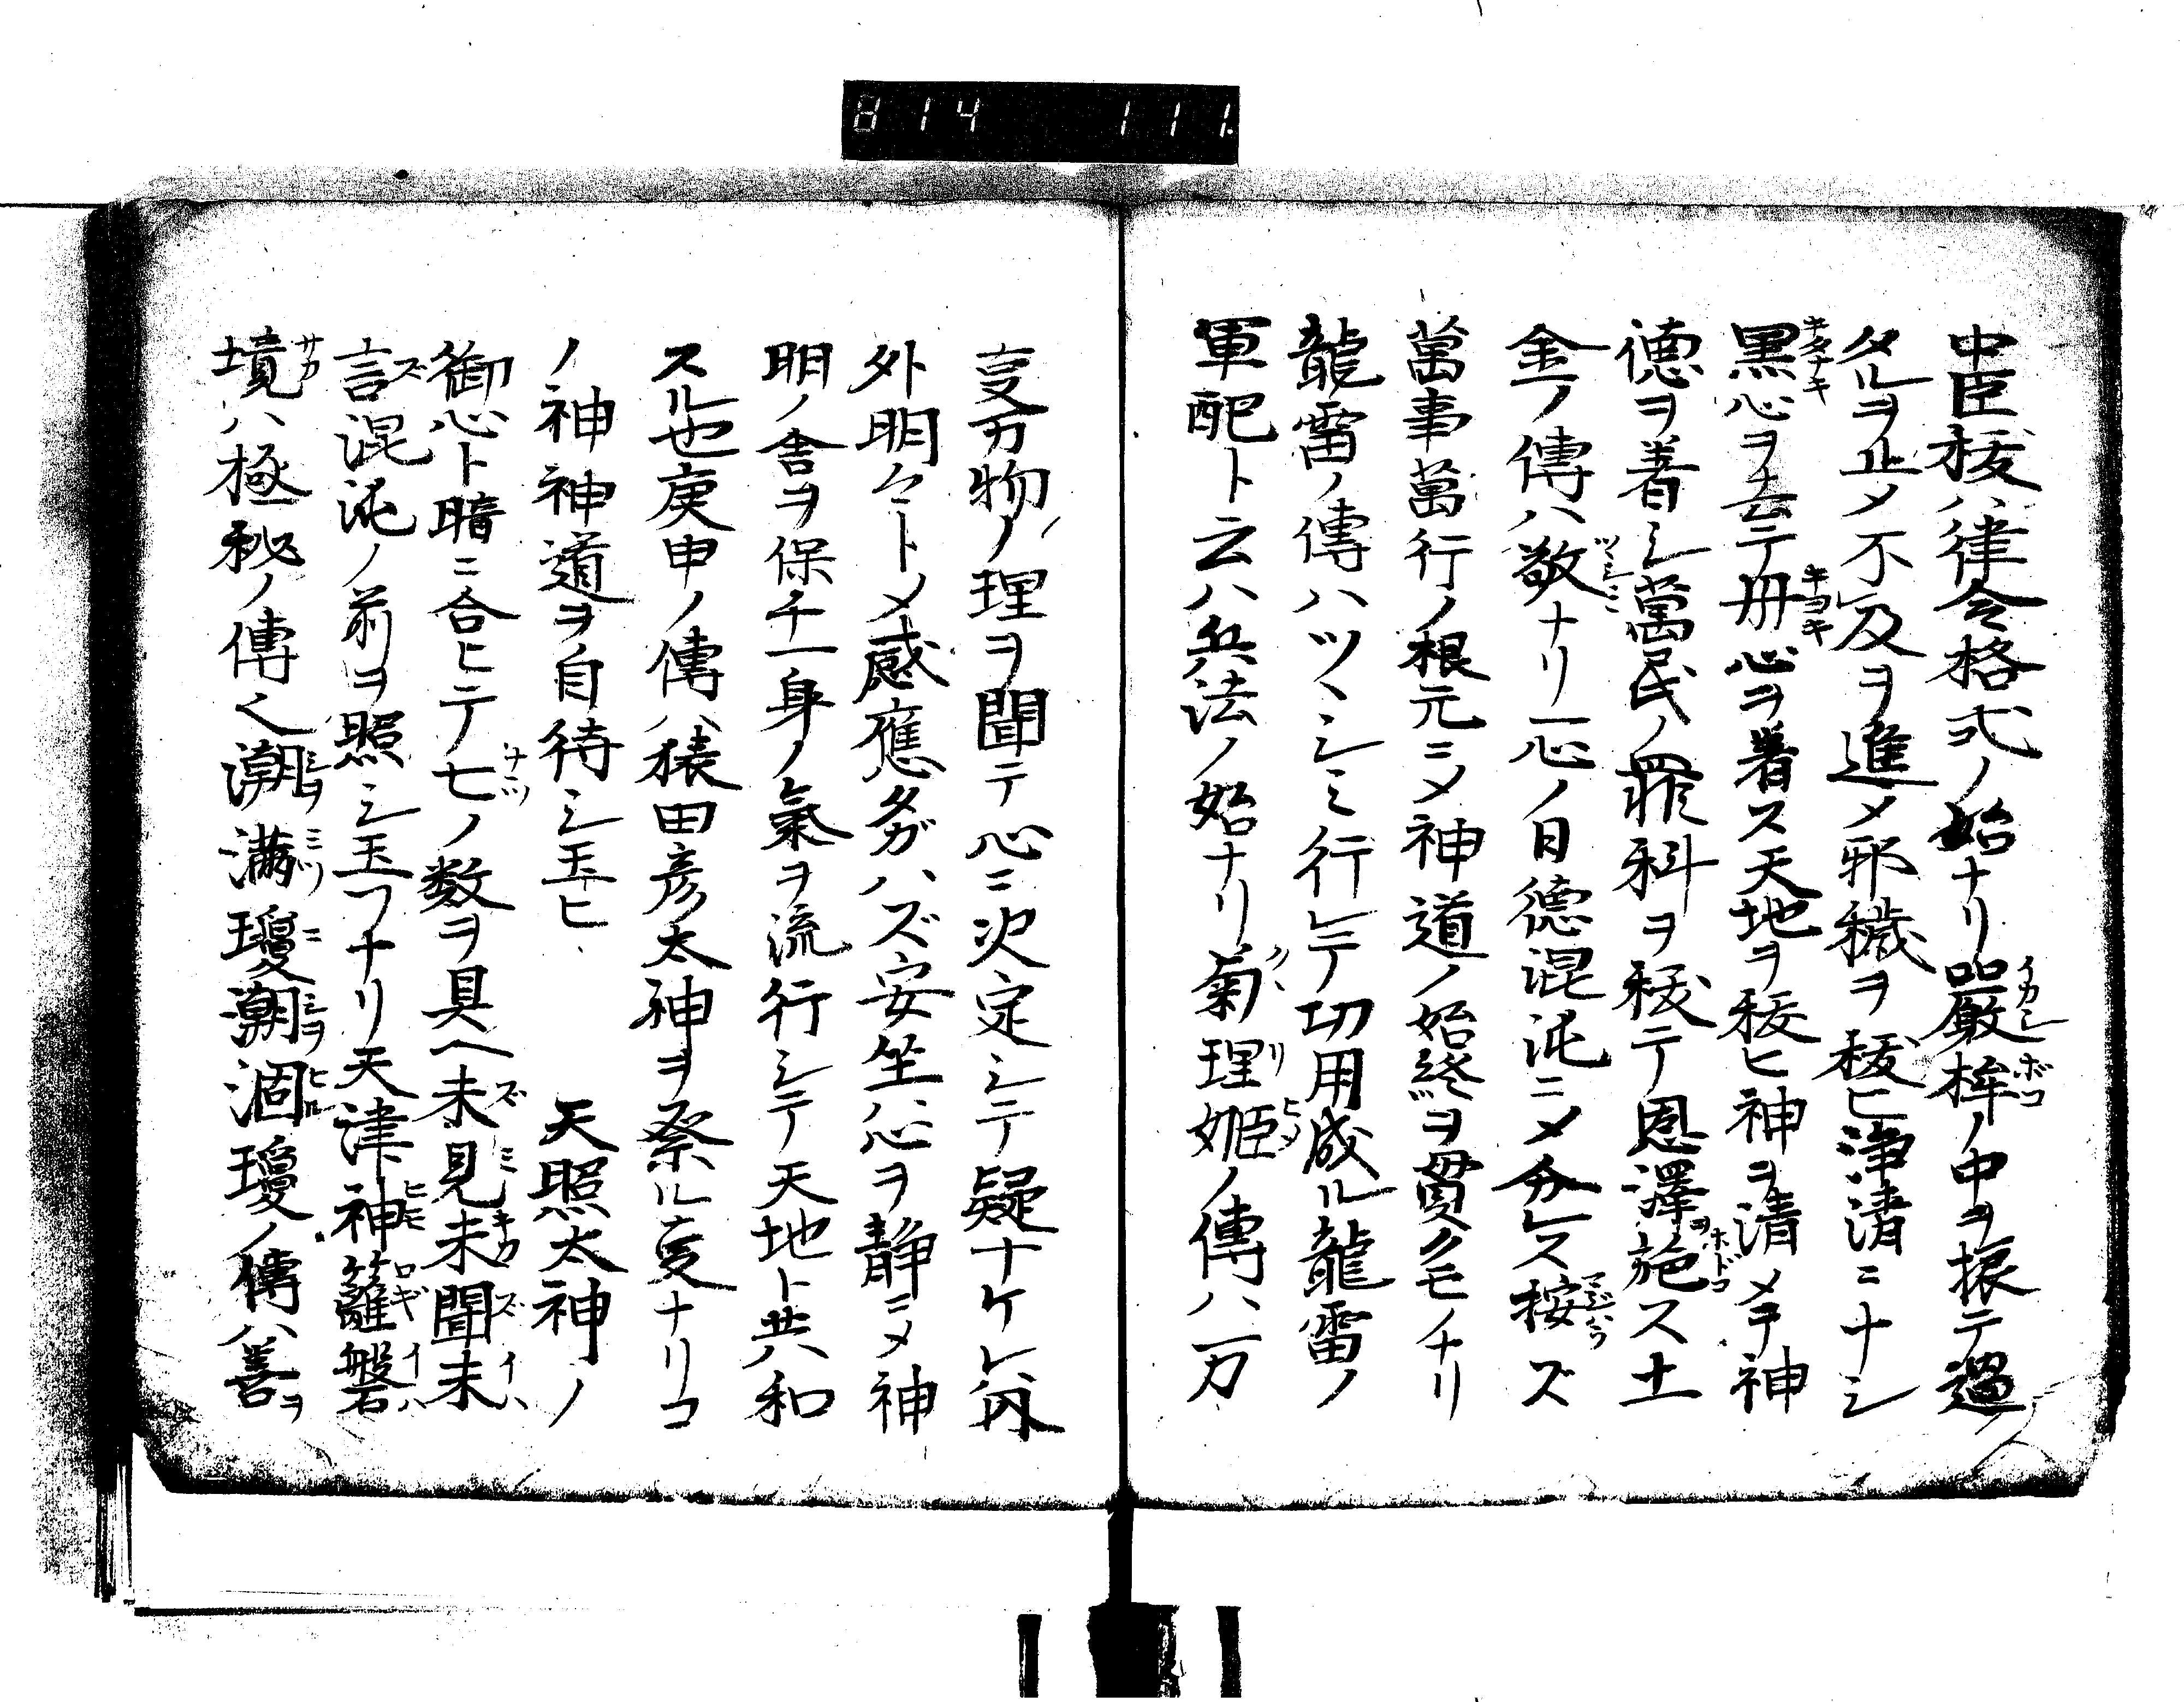 814 111.
中臣祓ハ律令格式ノ始ナリ嚴桙ノ中ヲ振テ過
タルヲ止メ不及ヲ進メ邪穢ヲ祓ヒ浄清ニナシ
黒心ヲ去テ丹心ヲ着ス天地ヲ祓ヒ神ヲ清メテ神
徳ヲ着シ萬民ノ罪科ヲ祓テ恩澤施ス土
金ノ傳ハ敬ナリ一心ノ日徳混沌ニメ分レス按ズ
萬事萬行ノ根元ニメ神道ノ始終ヲ貫クモノナリ
龍雷ノ傳ハツヽシミ行レテ切用成ル龍雷ノ
軍配ト云ハ兵法ノ始ナリ菊理姫ノ傳ハ一万
叓万物ノ理ヲ聞テ心ニ決定シテ疑ナケレ𪜈
外明々トメ感應タガハズ安坐心ヲ静ニメ神
明ノ舎ヲ保チ一身ノ氣ヲ流行シテ天地ト共ハ和
スル也庚申ノ傳ハ猿田彦太神ヲ祭ル叓ナリコ
ノ神神道ヲ自待シ玉ヒ 天照太神ノ
御心ト暗ニ合ヒテ七ノ数ヲ具ヘ未見未聞未
言混沌ノ前ヲ照シ玉フナリ天津神籬磐
境ハ極秘ノ傳く潮満瓊潮涸瓊ノ傳ハ善ヲ